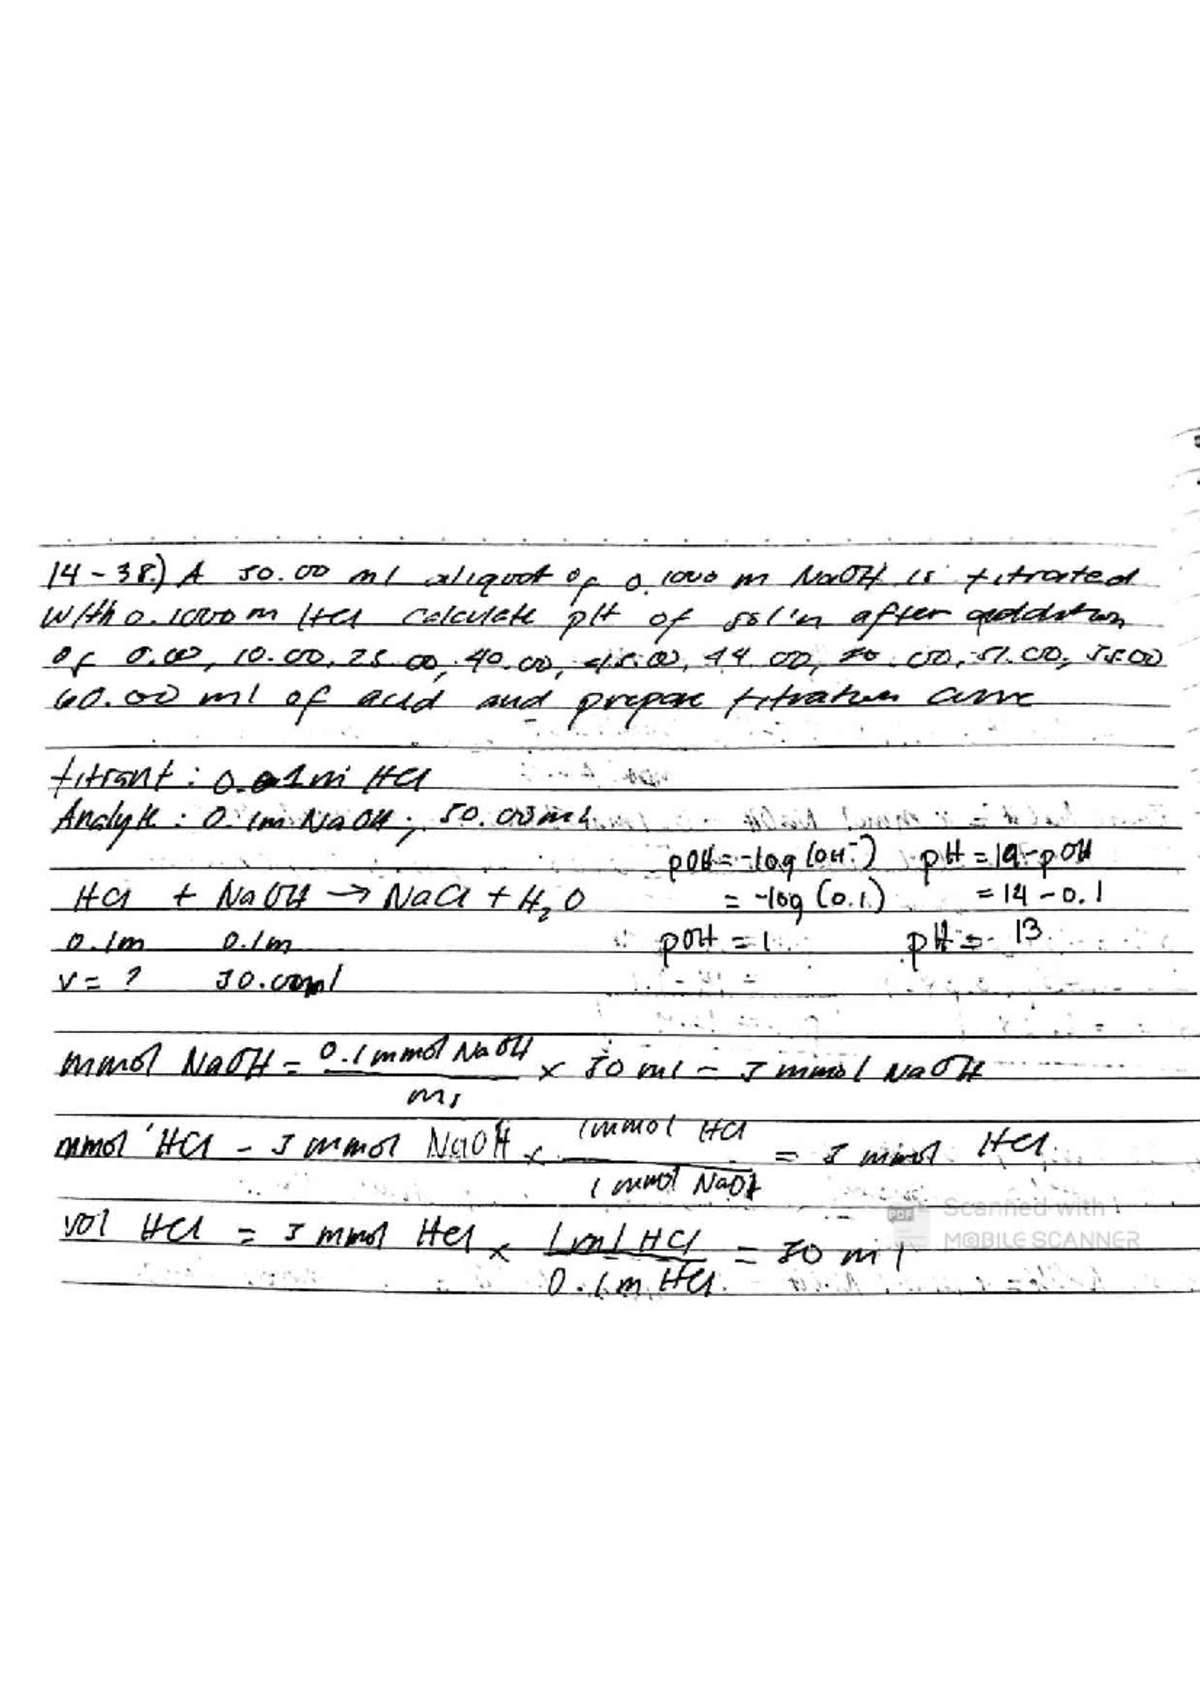 14-38.) A 50.00 ml aliquot of 0.1000 m NaOH is titrated
with 0.1000 m HCl calculate pH of sol'n after addition
of 0.00, 10.00, 25.00, 40.00, 45.00, 49.00, 50.00, 51.00, 55.00
60.00 ml of acid and prepare titration curve
titrant: 0.1m HCl
Analyte: 0.1m NaOH; 50.00ml
pOH = -log (OH-) pH = 14-pOH
HCl + NaOH → NaCl + H2O = -log (0.1) = 14 - 0.1
0.1m 0.1m pOH = 1 pH = 13
v = ? 50.00ml
mmol NaOH = 0.1 mmol NaOH / ml × 50 ml = 5 mmol NaOH
mmol HCl = 5 mmol NaOH × 1mmol HCl / 1 mmol NaOH = 5 mmol HCl
vol HCl = 5 mmol HCl × 1ml HCl / 0.1m HCl = 50 ml
PDF Scanned with
MOBILE SCANNER